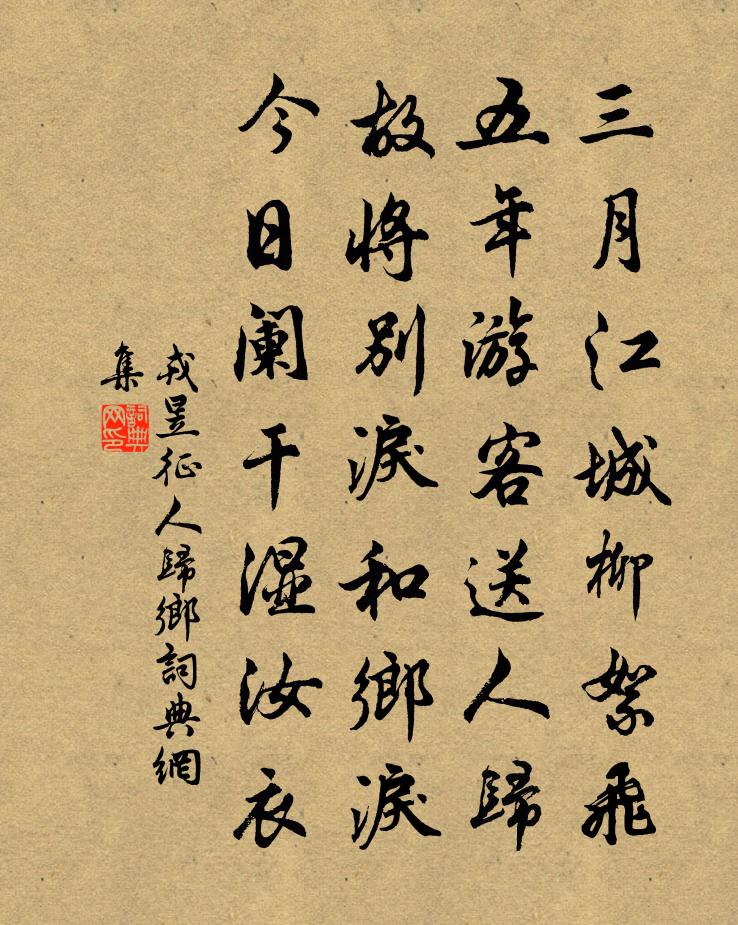 三月江城柳絮飛
五年游客送人歸
故將別淚和鄉淚
今日闌干濕汝衣
戎昱征人歸鄉詞典網
集
詞典
网印